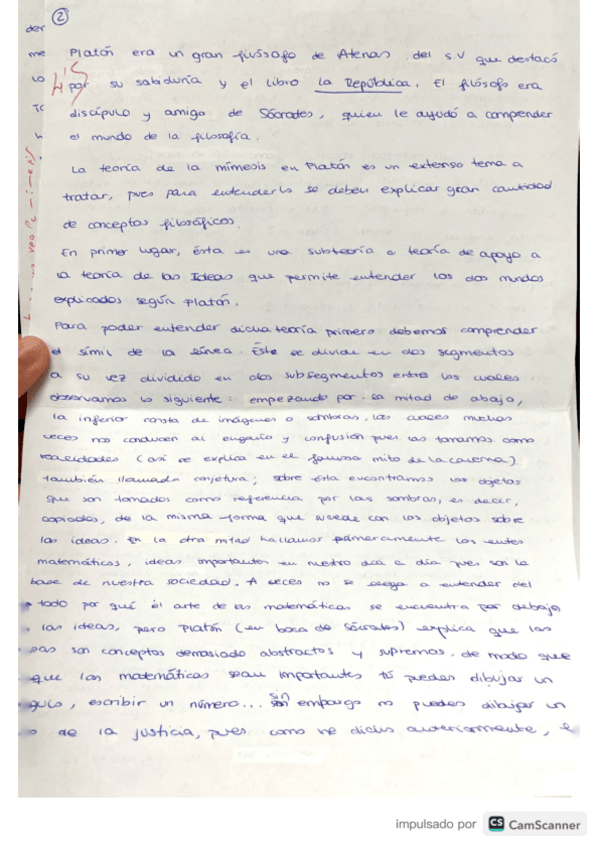 2
der
me Platón era un gran filósofo de Atenas del s.V que destacó
LO por su sabiduría y el libro La República. El filósofo era
discípulo y amigo de Sócrates, quien le ayudó a comprender
el mundo de la filosofía.
La teoría de la mímesis en Platón es un extenso tema a
tratar, pues para entenderlo se deben explicar gran cantidad
de conceptos filosóficos.
En primer lugar, ésta es una subteoría o teoría de apoyo a
la teoría de las Ideas que permite entender los dos mundos
explicados según Platón.
Para poder entender dicha teoría primero debemos comprender
el símil de la línea. Éste se divide en dos segmentos
a su vez dividido en dos subsegmentos entre los cuales
observamos lo siguiente: empezando por la mitad de abajo,
la inferior consta de imágenes o sombras, las cuales muchas
veces nos conducen al engaño y confusión pues las tomamos como
realidades (así se explica en el famoso mito de la caverna)
también llamada conjetura; sobre ésta encontramos los objetos
que son tomados como referencia por las sombras, es decir,
copiados, de la misma forma que sucede con los objetos sobre
las ideas. En la otra mitad hallamos primeramente los entes
matemáticos, ideas importantes en nuestro día a día pues son la
base de nuestra sociedad. A veces no se llega a entender del
todo por qué el arte de las matemáticas se encuentra por debajo
las ideas, pero Platón (en boca de Sócrates) explica que las
son conceptos demasiado abstractos y supremos. de modo que
que las matemáticas sean importantes tú puedes dibujar un
gulo, escribir un número... sin embargo no puedes dibujar un
de la justicia, pues como he dicho anteriormente, e
impulsado por CS CamScanner